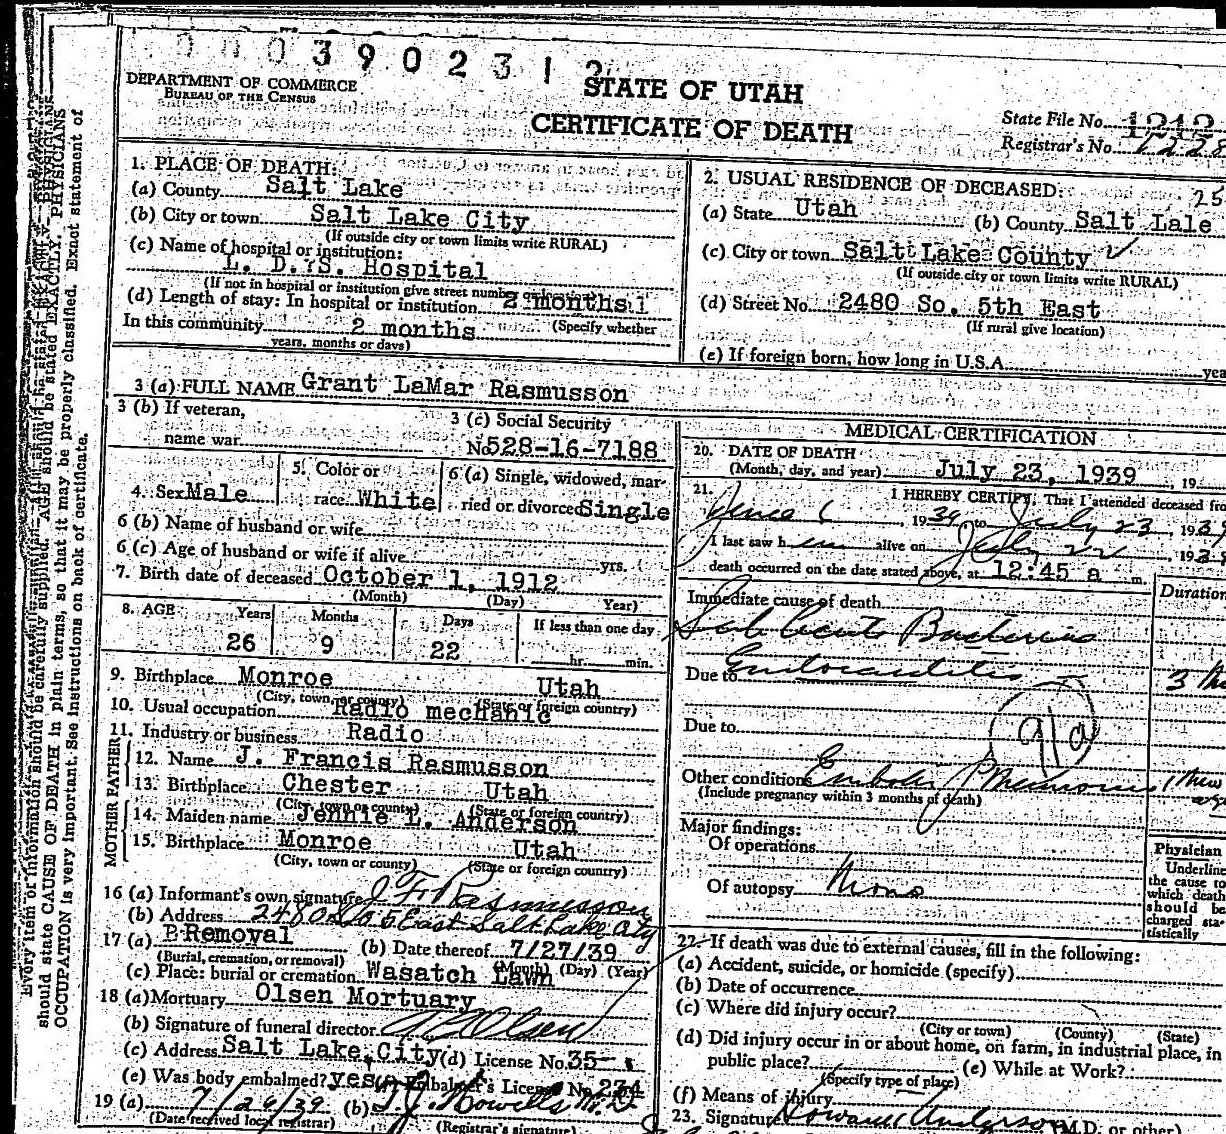 0 0 0 3 9 0 2 3 1 2
DEPARTMENT OF COMMERCE
BUREAU OF THE CENSUS
STATE OF UTAH
CERTIFICATE OF DEATH
State File No. 1212
Registrar's No. 1228
1. PLACE OF DEATH:
(a) County Salt Lake
(b) City or town Salt Lake City
(If outside city or town limits write RURAL)
(c) Name of hospital or institution:
L. D. S. Hospital
(If not in hospital or institution give street number
(d) Length of stay: In hospital or institution 2 months
In this community 2 months (Specify whether
years, months or days)
2. USUAL RESIDENCE OF DECEASED: 25
(a) State Utah (b) County Salt Lale
(c) City or town Salt Lake County
(If outside city or town limits write RURAL)
(d) Street No. 2480 So. 5th East
(If rural give location)
(e) If foreign born, how long in U.S.A. yea
3 (a) FULL NAME Grant LaMar Rasmusson
3 (b) If veteran,
name war
3 (c) Social Security
No 528-16-7188
4. Sex Male
5. Color or
race White
6 (a) Single, widowed, mar-
ried or divorced Single
6 (b) Name of husband or wife
6 (c) Age of husband or wife if alive yrs.
7. Birth date of deceased October 1, 1912
(Month) (Day) Year)
8. AGE Years Months Days If less than one day
26 9 22 hr. min.
9. Birthplace Monroe Utah
(City, town, or county) (State or foreign country)
10. Usual occupation Radio mechanic
11. Industry or business Radio
FATHER
12. Name J. Francis Rasmusson
13. Birthplace Chester Utah
(City, town or county) (State or foreign country)
MOTHER
14. Maiden name Jennie L. Anderson
15. Birthplace Monroe Utah
(City, town or county) (State or foreign country)
16 (a) Informant's own signature J F Rasmusson
(b) Address 2480 So 5 East Salt Lake City
17 (a) Removal (b) Date thereof 7/27/39
(Burial, cremation, or removal) (Month) (Day) (Year)
(c) Place: burial or cremation Wasatch Lawn
18 (a) Mortuary Olsen Mortuary
(b) Signature of funeral director Olsen
(c) Address Salt Lake City (d) License No. 35-
(e) Was body embalmed? yes Embalmer's License No. 234
19 (a) 7/26/39 (b) T. J. Howells M.D
(Date received local registrar) (Registrar's signature)
MEDICAL CERTIFICATION
20. DATE OF DEATH
(Month, day, and year) July 23, 1939, 19
21. I HEREBY CERTIFY, That I attended deceased fro
June 1939 to July 23, 193
I last saw him alive on July 22, 193
death occurred on the date stated above, at 12:45 a m.
Immediate cause of death Duration
Sub Acute Bacterius
Due to Endocarditis 3
Due to 91a
Other conditions Embolic Pneumonia
(Include pregnancy within 3 months of death)
Major findings:
Of operations
Of autopsy None
Physician
Underline
the cause to
which death
should be
charged sta-
tistically
22. If death was due to external causes, fill in the following:
(a) Accident, suicide, or homicide (specify)
(b) Date of occurrence
(c) Where did injury occur?
(City or town) (County) (State)
(d) Did injury occur in or about home, on farm, in industrial place, in
public place? (e) While at Work?
(Specify type of place)
(f) Means of injury
23. Signature Howard Anderson (M.D. or other)
Every item of information should be carefully supplied. AGE should be stated EXACTLY. PHYSICIANS
should state CAUSE OF DEATH in plain terms, so that it may be properly classified. Exact statement of
OCCUPATION is very important. See instructions on back of certificate.